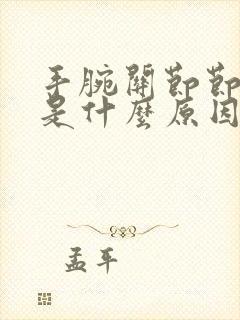 手腕關節節
是什麼原因
孟平